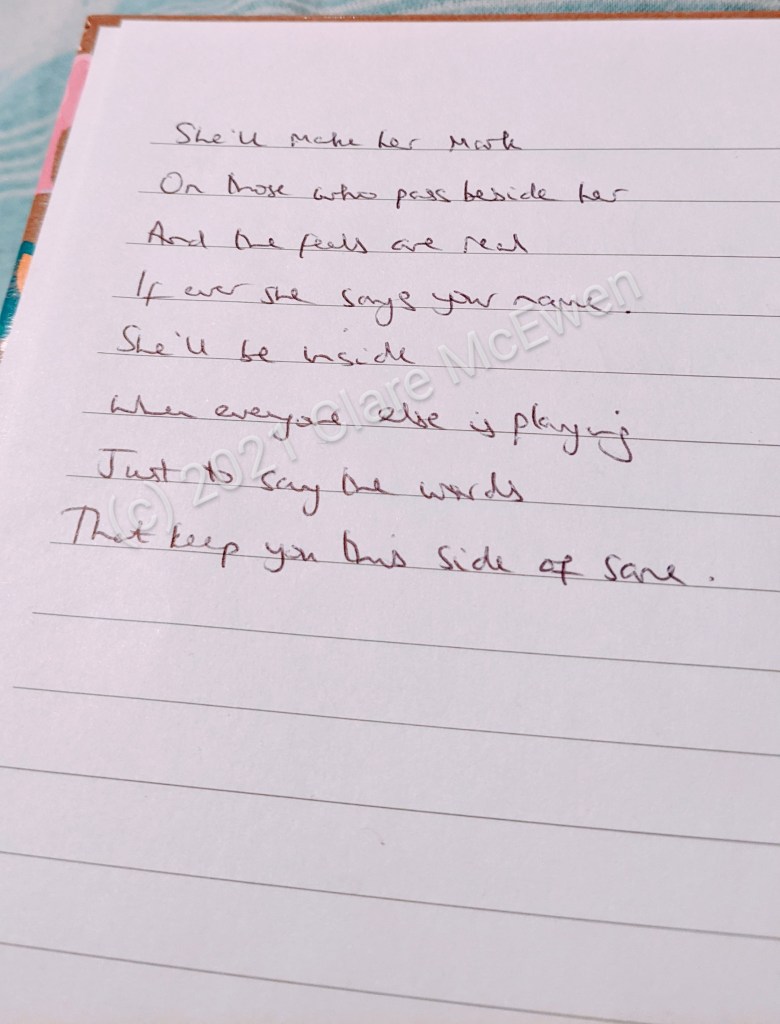 She'll make her mark
On those who pass beside her
And the feels are real
If ever she says your name.
She'll be inside
When everyone else is playing
Just to say the words
That keep you this side of sane.
(c) 2021 Clare McEwen